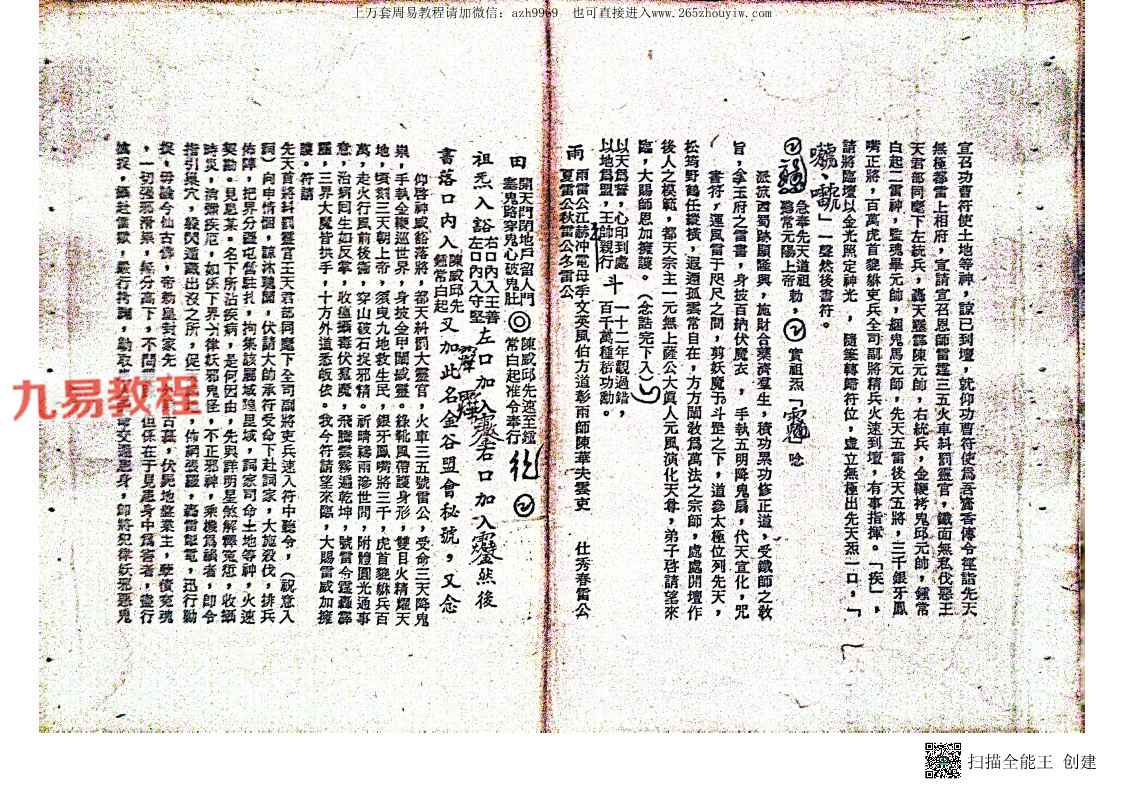 上万套周易教程请加微信：azh9969　也可直接进入www.265zhouyiw.com
宣召功曹符使土地等神，諒已到壇，就仰功曹符使爲吾賫香傳令徑詣先天
無極都雷上相府，宣請宣召恩師雷霆三五火車糾罰靈官，鐵面無私伐惡王
天君部同麾下左統兵，轟天霹靂陳元帥，右統兵，金鞭拷鬼邱元帥，鍾常
白起二雷神，監魂畢元帥，緄鬼馬元帥，先天五雷後天五將，三千銀牙鳳
嘴正將，百萬虎首貔貅吏兵全司副將精兵火速到壇，有事指揮。「疾」，
請將臨壇以金光照定神光，隨筆轉歸符位，虛立無極出先天炁一口，「
」一聲然後書符。
急奉先天道祖
鍾常元陽上帝 勅， 實祖炁「 」唸
派流西蜀跡顯隆興，施財合藥濟羣生，積功累功修正道，受鐵師之教
旨，拿玉府之雷書，身披百納伏魔衣，手執五明降鬼扇，代天宣化，咒
書符，運風雷于咫尺之間，剪妖魔于斗罡之下，道參太極位列先天，
松筠野鶴任縱橫，遐邇孤雲常自在，方方闡教爲萬法之宗師，處處開壇作
後人之模範，都天宗主一元無上薩公大眞人元風演化天尊，弟子啓請望來
臨，大賜師恩加擁護。（念誥完下入）
以天爲誓，心印到處 斗 一十二年觀過錯，
以地爲盟，王帥親行 百千萬種稽功勳。
雨 雨雷公江赫冲電母季文英風伯方道彰雨師陳華夫雲吏 仕秀春雷公
夏雷公秋雷公冬雷公
田 開天門閉地戶留人門 陳威邱先速至鍾
塞鬼路穿鬼心破鬼肚 常白起准令奉行
祖炁入谿 右口內入王善
左口內入守堅 左口加入 右口加入 然後
書落口內入 陳威邱先
鍾常白起 又加 此名金谷盟會秘號，又念
仰啓神威豁落將，都天糾罰大靈官，火車三五號雷公，受命三天降鬼
祟，手執金鞭巡世界，身披金甲闡威靈。綠靴風帶護身形，雙目火精耀天
地，頃刻三天朝上帝，須臾九地救生民，銀牙鳳嘴將三千，虎首貔貅兵百
萬，走火行風前後衞，穿山破石捉邪精。祈晴禱雨滲世間，附體圓光通事
意，治病回生如反掌，收瘟攝毒伏羣魔，飛騰雲霧遍乾坤，號雷令霆轟霹
靂，三界大魔皆拱手，十方外道悉皈依。我今符請望來臨，大賜雷威加擁
護。符請
先天首將糾罰靈官王天君部同麾下全司副將吏兵速入符中聽令，（祝意入
詞）向申情悃，諒沐聰聞，伏請大帥承行受命下赴詞家，大施殺伐，排兵
佈陣，把界分疆屯營駐扎，拘集該屬城隍里域，詞家司命土地等神，火速
契勘。見患某。名下所沾疾病，是何因由，先與詳明星煞解釋冤愆，收攝
時災，消彌疾厄，如係下界犯律妖邪鬼怪，不正邪神，乘機爲禍者，卽令
指引巢穴，殺閃遁藏出沒之所，促兵，佈網張羅，轟雷掣電，迅行勦
捉，毋論今仙古佛，帝勅皇封家先 古墓，伏屍地盤業主，孽債冤魂
，一切强邪滑祟，無分高下，不問 但係在于見患身中爲害者，盡行
擒捉，攝赴雷獄，嚴行拷鞫，勒取 命交還患身，卽將犯律妖邪惡鬼
九易教程
扫描全能王 创建